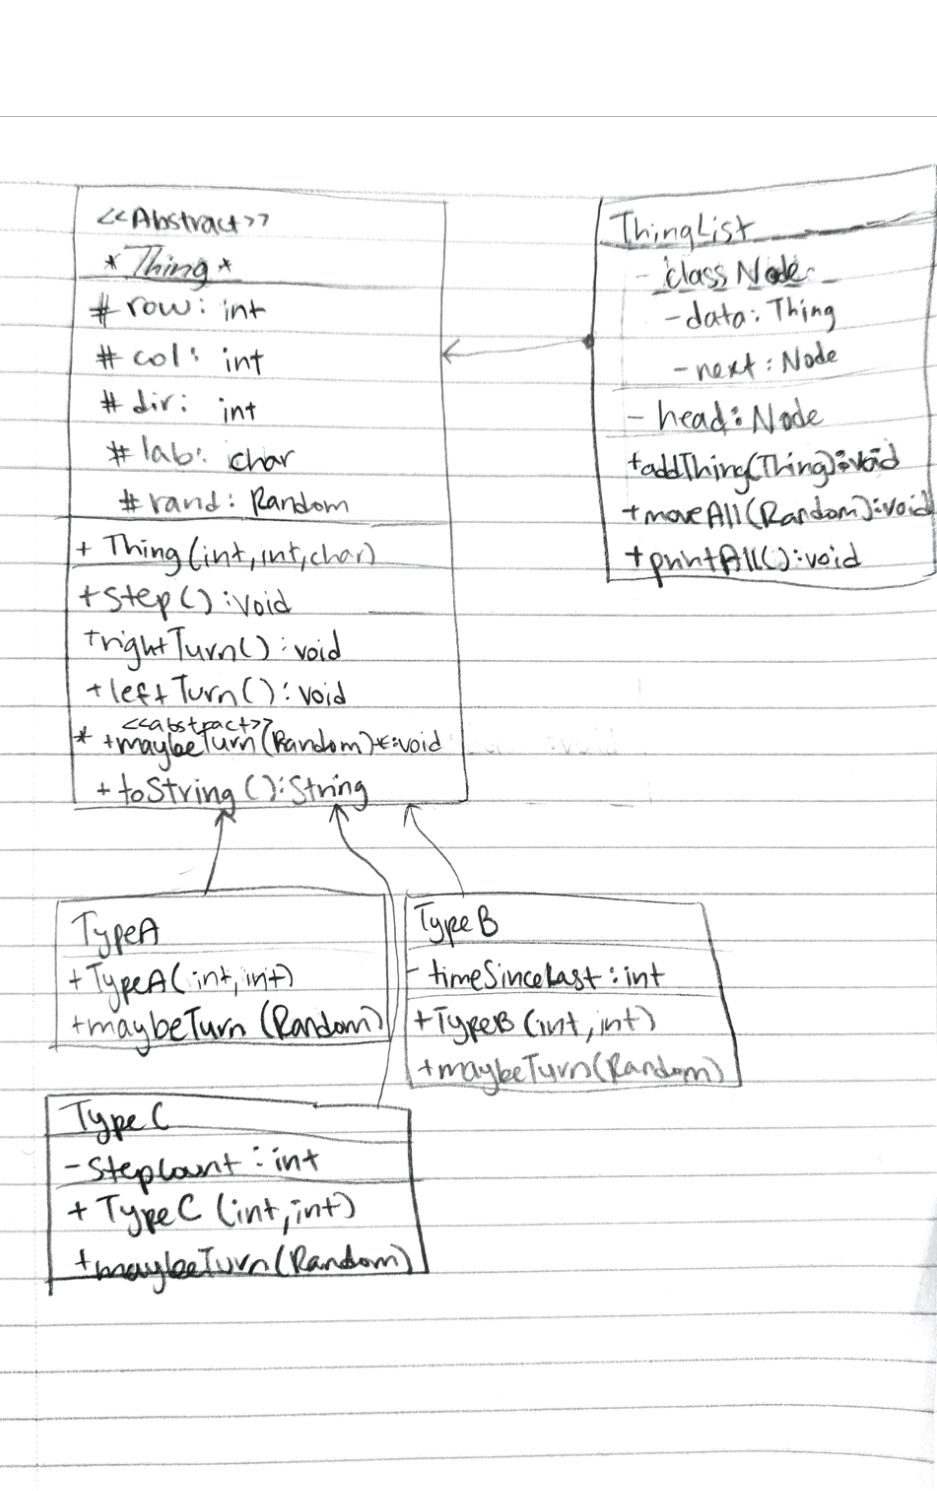 <<Abstract>>
* Thing *
# row: int
# col: int
# dir: int
# lab: char
# rand: Random
+ Thing(int,int,char)
+step():void
+rightTurn():void
+leftTurn():void
<<abstract>>
* +maybeTurn(Random)*:void
+toString():String
ThingList
- class Node
- data: Thing
- next: Node
- head: Node
+addThing(Thing):void
+moveAll(Random):void
+printAll():void
TypeA
+TypeA(int,int)
+maybeTurn(Random)
TypeB
- timeSinceLast: int
+TypeB(int,int)
+maybeTurn(Random)
TypeC
-stepCount: int
+ TypeC (int,int)
+maybeTurn(Random)